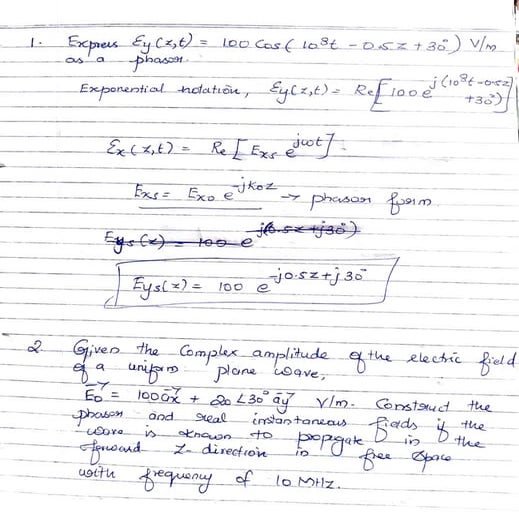 1. Express Ey(z,t) = 100 Cos(10⁸t - 0.5z + 30°) V/m
as a phasor.
Exponential notation, Ey(z,t) = Re[100 e^j(10⁸t-0.5z
+30°)]
Ex(z,t) = Re[Exs e^jωt].
Exs = Exo e^-jkoz → phasor form.
Eys(z) = 100 e^j(0.5z+j30°)
Eys(z) = 100 e^-j0.5z+j30°
2. Given the Complex amplitude of the electric field
of a uniform plane wave,
Eo = 100 ax + 20∠30° ay V/m. Construct the
phasor and real instantaneous fields if the
wave is known to propgate in the
forward z-direction in free space
with frequency of 10 MHz.